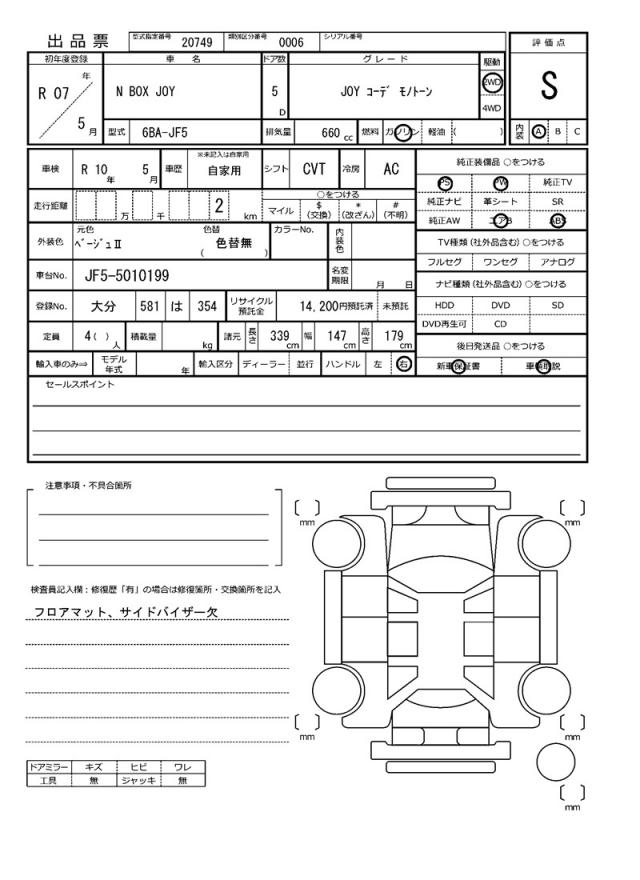 出品票 型式指定番号 20749 類別区分番号 0006 シリアル番号
評価点
初年度登録 車名 ドア数 グレード 駆動
R 07 年 N BOX JOY 5 D JOY コーデ モノトーン 2WD S
4WD
5 月 型式 6BA-JF5 排気量 660 cc 燃料 ガソリン 軽油 ( ) 内装 A B C
車検 R 10 年 5 月 車歴 ※未記入は自家用 自家用 シフト CVT 冷房 AC 純正装備品 ○をつける
PS PW 純正TV
走行距離 万 千 2 km ○をつける 純正ナビ 革シート SR
マイル $(交換) *(改ざん) #(不明) 純正AW エアB ABS
外装色 元色 ベージュⅡ 色替 色替無 ( ) カラーNo. 内装色 TV種類(社外品含む)○をつける
フルセグ ワンセグ アナログ
車台No. JF5-5010199 名変期限 月 日 ナビ種類(社外品含む)○をつける
登録No. 大分 581 は 354 リサイクル預託金 14,200円預託済 未預託 HDD DVD SD
DVD再生可 CD
定員 4( ) 人 積載量 kg 諸元 長さ 339 cm 幅 147 cm 高さ 179 cm 後日発送品 ○をつける
輸入車のみ⇒ モデル年式 年 輸入区分 ディーラー 並行 ハンドル 左 右 新車保証書 車輌取説
セールスポイント
注意事項・不具合箇所
mm mm
検査員記入欄:修復歴「有」の場合は修復箇所・交換箇所を記入
フロアマット、サイドバイザー欠
mm mm
ドアミラー キズ ヒビ ワレ
工具 無 ジャッキ 無
mm